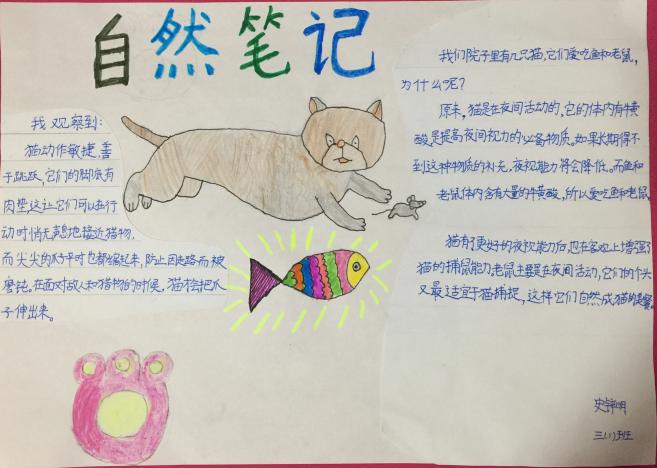 自然笔记
我观察到:
猫动作敏捷,善
于跳跃,它们的脚底有
肉垫,这让它们可以在行
动时悄无声息地接近猎物.
而尖尖的爪子平时也都缩起来,防止因走路而被
磨钝,在面对敌人和猎物的时候,猫才会把爪
子伸出来.
我们院子里有几只猫,它们爱吃鱼和老鼠,
为什么呢?
原来,猫是在夜间活动的,它的体内有牛磺
酸,是提高夜间视力的必备物质。如果长期得不
到这种物质的补充,夜视能力将会降低。而鱼和
老鼠体内含有大量的牛磺酸,所以爱吃鱼和老鼠.
猫有了更好的夜视能力后,也在客观上增强了
猫的捕鼠能力,老鼠主要是在夜间活动,它们的个头
又最适宜于猫捕捉,这样它们自然成猫的美餐.
三(1)班